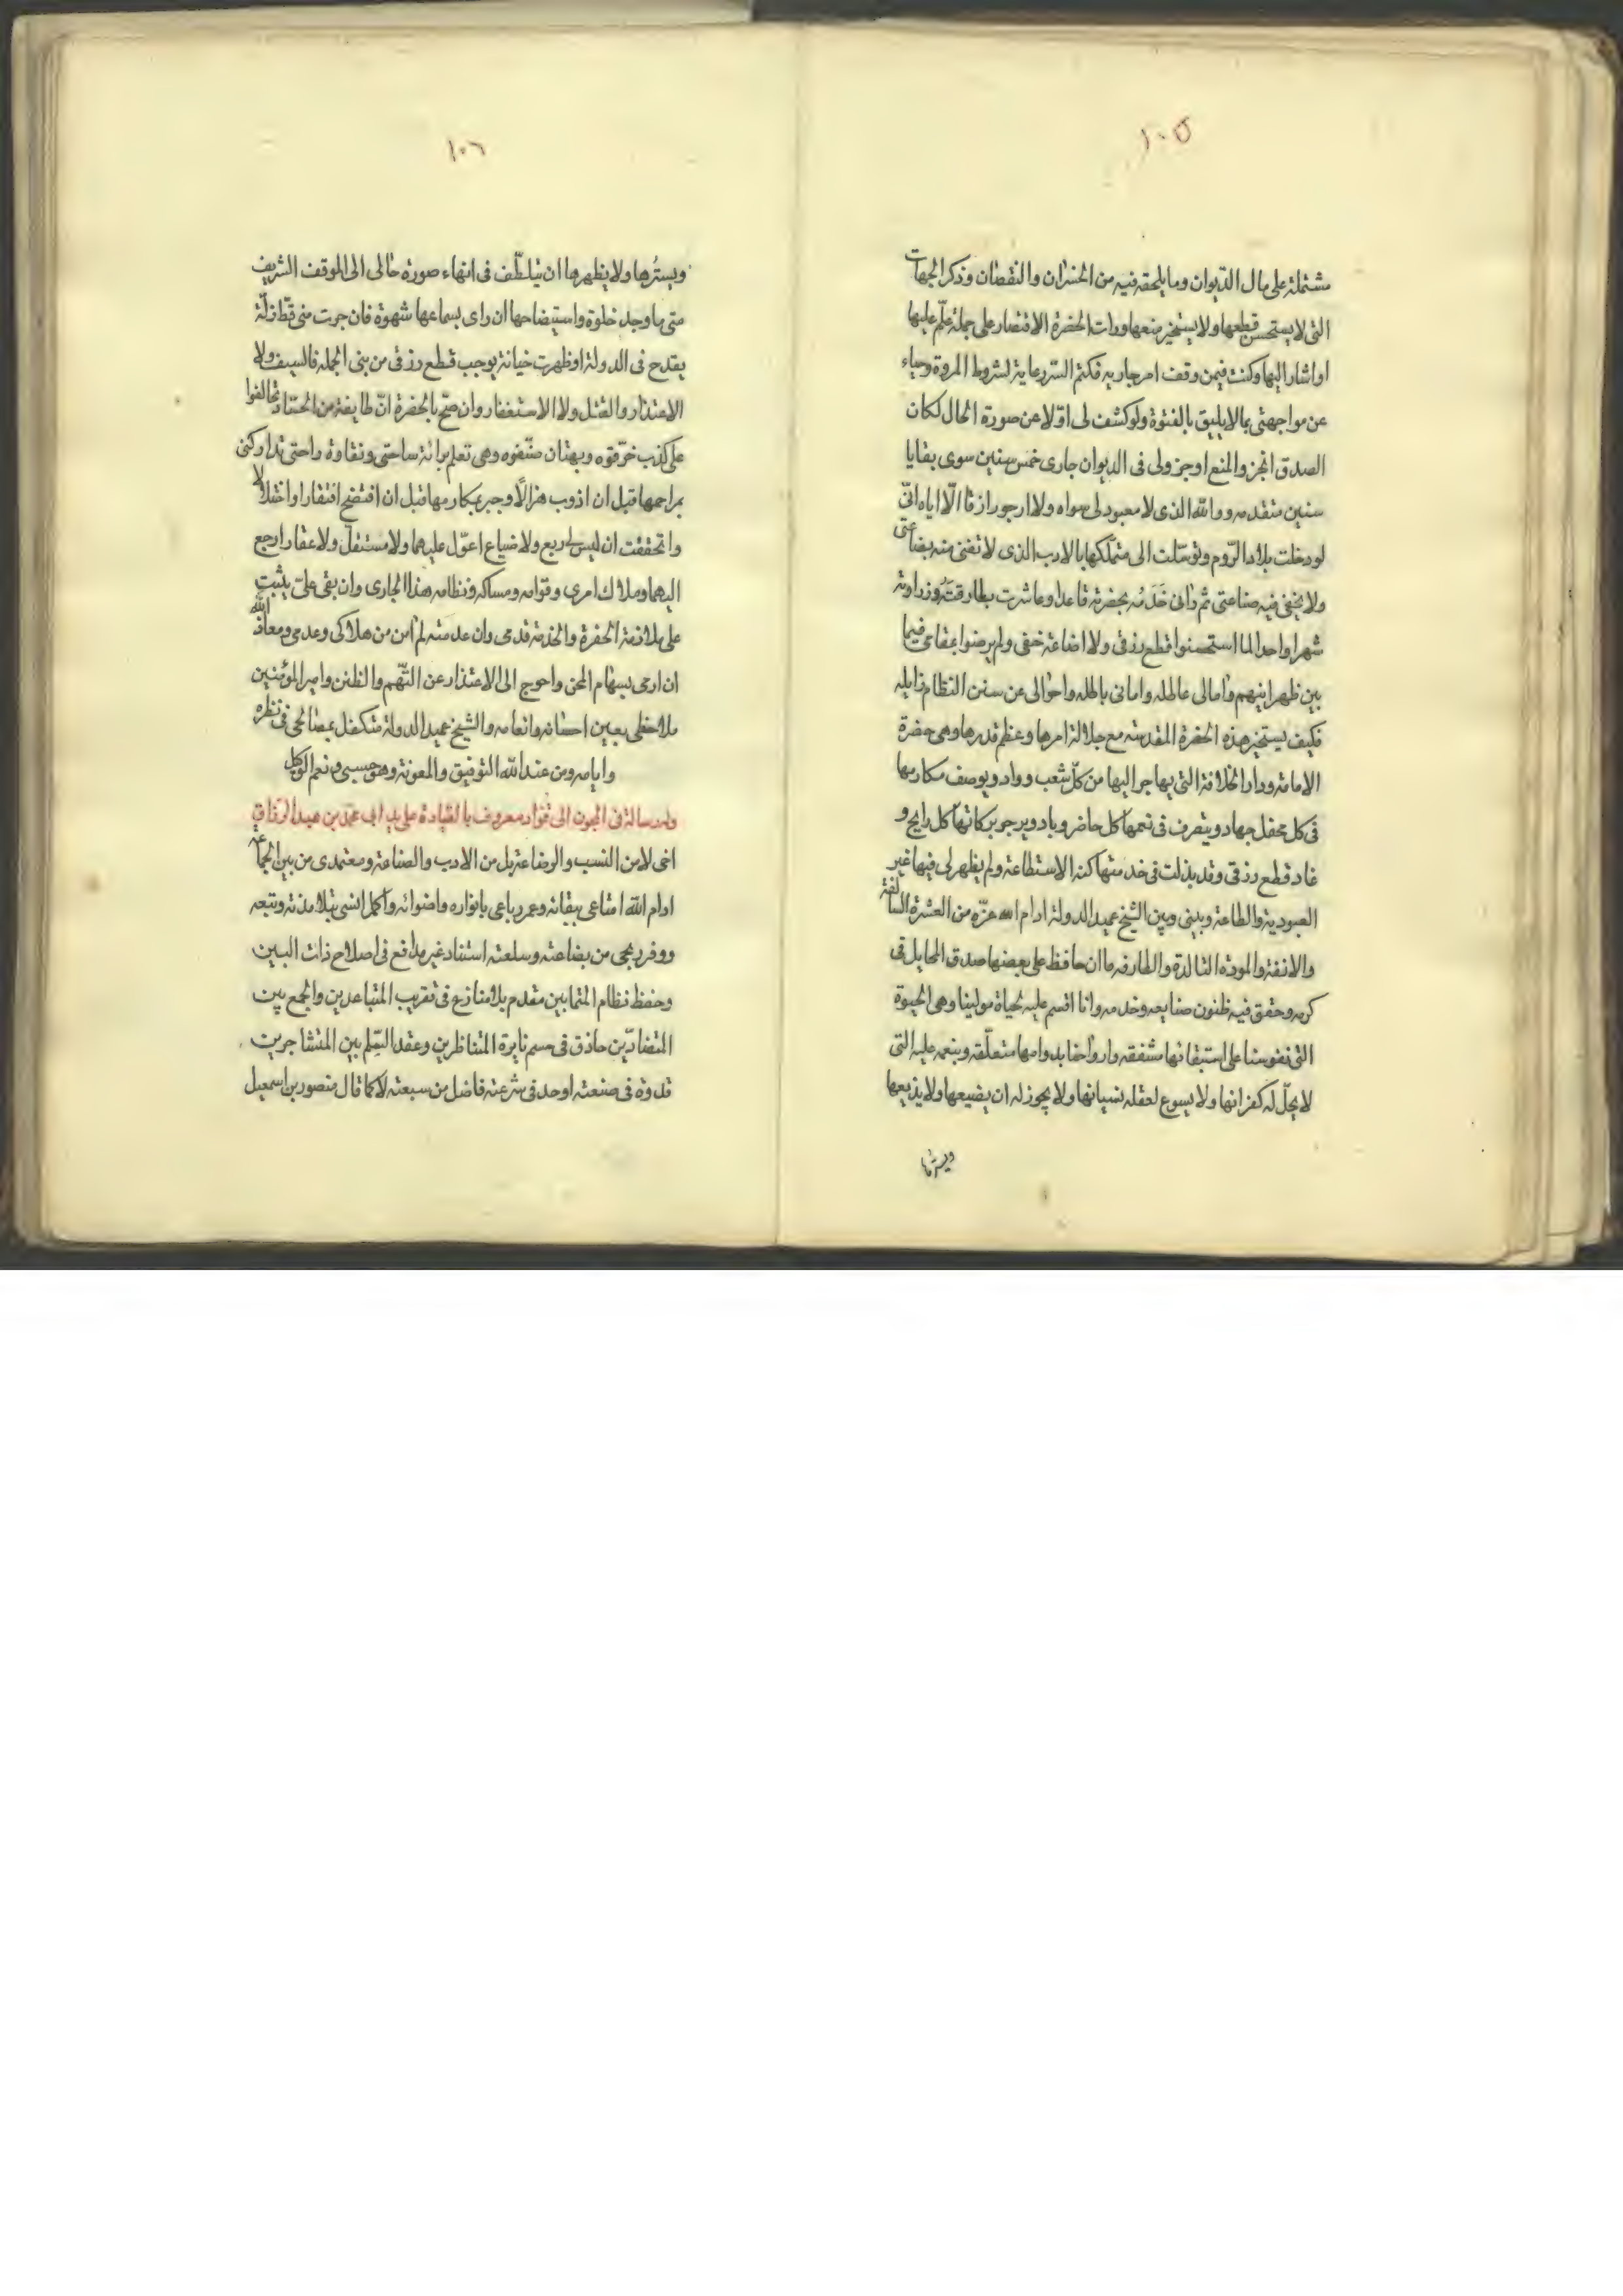 ١٠٥
مشتملة على مال الديوان وما يلحقه فيه من الخسران والنقصان وذكر الجهات
التى لا يستحسن قطعها ولا يستخير منعها ورات الحضرة الاقتصار على جملة علّم عليها
او اشار اليها وكنت فيمن وقف امر جاريه فكتم الستر رعاية لشروط المروة وحياء
عن مواجهتى بما لا يليق بالفتوة ولو كشف لى اوّلا عن صورة الحال لكان
الصدق انجز والمنع اوجز ولى فى الديوان جارى خمس سنين سوى بقايا
سنين متقدمه ووالله الذى لا معبود لى سواه ولا ارجو رازقا الّا اياه انّى
لو دخلت بلاد الرّوم وتوسّلت الى متملّكها بالادب الذى لا تفنى منه بضاعتى
ولا يخفى فيه صناعتى ثم رانى خَدَمُه بحضرته قاعدا وعاشرت بطارقتَهُ وزراوته
شهرا واحدا لما استحسنوا قطع رزقى ولا اضاعة حقى ولم يرضوا بمقامى فيما
بين ظهرانيهم وامالى عاطله وامانى باطله واحوالى عن سنن النظام زايله
فكيف يستخير هذه الحضرة المقدسه مع جلالة امرها وعظم قدرها وهى حضرة
الامامه ودار الخلافة التى يهاجر اليها من كلّ شعب وواد ويوصف مكارمها
فى كل محفل جهاد ويتصرف فى نعمها كل حاضر وباد ويرجو بركاتها كل رايح و
غاد قطع رزقى وقد بذلت فى خدمتها كنه الاستطاعة ولم يظهر لى فيها غير
العبودية والطاعة وبينى وبين الشيخ عميد الدولة ادام الله عزّه من العشرة السالفة
والانفة والمودة التالدة والطارفه ما ان حافظ على بعضها صدق المخايل فى
كرمه وحقق فيه ظنون صنايعه وخدمه وانا اقسم عليه بحياة مولينا وهى الحيوة
التى نفوسنا على استبقائها مشفقه وارواحنا بدوامها متعلّقه وبنعمه عليه التى
لا يحلّ له كفرانها ولا يسوع لعقله نسيانها ولا يجوز له ان يضيعها ولا يذيعها
ويسترها
١٠٦
ويسترُها ولا يظهرها ان يتلطّف فى انهاء صورة حالى الى الموقف الشريف
متى ما وجد خلوة واستيضاحها ان راى بسماعها شهوة فان جرت منى قطّ زلّة
يقدح فى الدولة او ظهرت خيانة يوجب قطع رزقى من بنى الجمله فالسيف ولا
الاعتذار والقتل ولا الاستغفار وان صحّ بالحضرة انّ طايفة من الحسّاد تحالفوا
على كذب خرّقوه وبهتان صنّفوه وهى تعلم برائة ساحتى ونقاوة راحتى تداركنى
بمراحمها قبل ان اذوب هزالًا وجبر بمكارمها قبل ان افتضح افتقارا واختلالا
واتحققت ان ليس لى ريع ولا ضياع اعوّل عليهما ولا مستغلّ ولا عقار ارجع
اليهما وملاك امرى وقوامه ومساكه ونظامه هذا الجارى وان بقى علىّ يثبت
على ملازمة الحضرة والخدمة قدمى وان عدمته لم امن من هلاكى وعدمى ومعاذ الله
ان ارمى بسهام المحن واحوج الى الاعتذار عن التّهم والظنن وامير المؤمنين
ملاحظى بعين احسانه وانعامه والشيخ عميد الدولة متكفل بمصالحى فى نظره
وايامه ومن عند الله التوفيق والمعونة وهو حسبى ونعم الوكيل
وله رسالة فى المجون الى قوّاد معروف بالقيادة على يد ابى محمد بن عبد الرزاق
اخى لا من النسب والرضاعة بل من الادب والصناعة ومعتمدى من بين الجماعة
ادام الله امتاعى ببقائه وعمر رباعى بانواره واضوائه واكمل انسى بتلامذته وتبعه
ووفر ربحى من بضاعته وسلعته استناد غير مدافع فى اصلاح ذات البين
وحفظ نظام المتحابين مقدم بلا منازع فى تقريب المتباعدين والجمع بين
المتضادّين حاذق فى حسم نايرة المتناظرين وعقد السِّلم بين المتشاجرين
قدوة فى صنعته اوحد فى شرعته فاضل من سبعته لا كما قال منصور بن اسمعيل